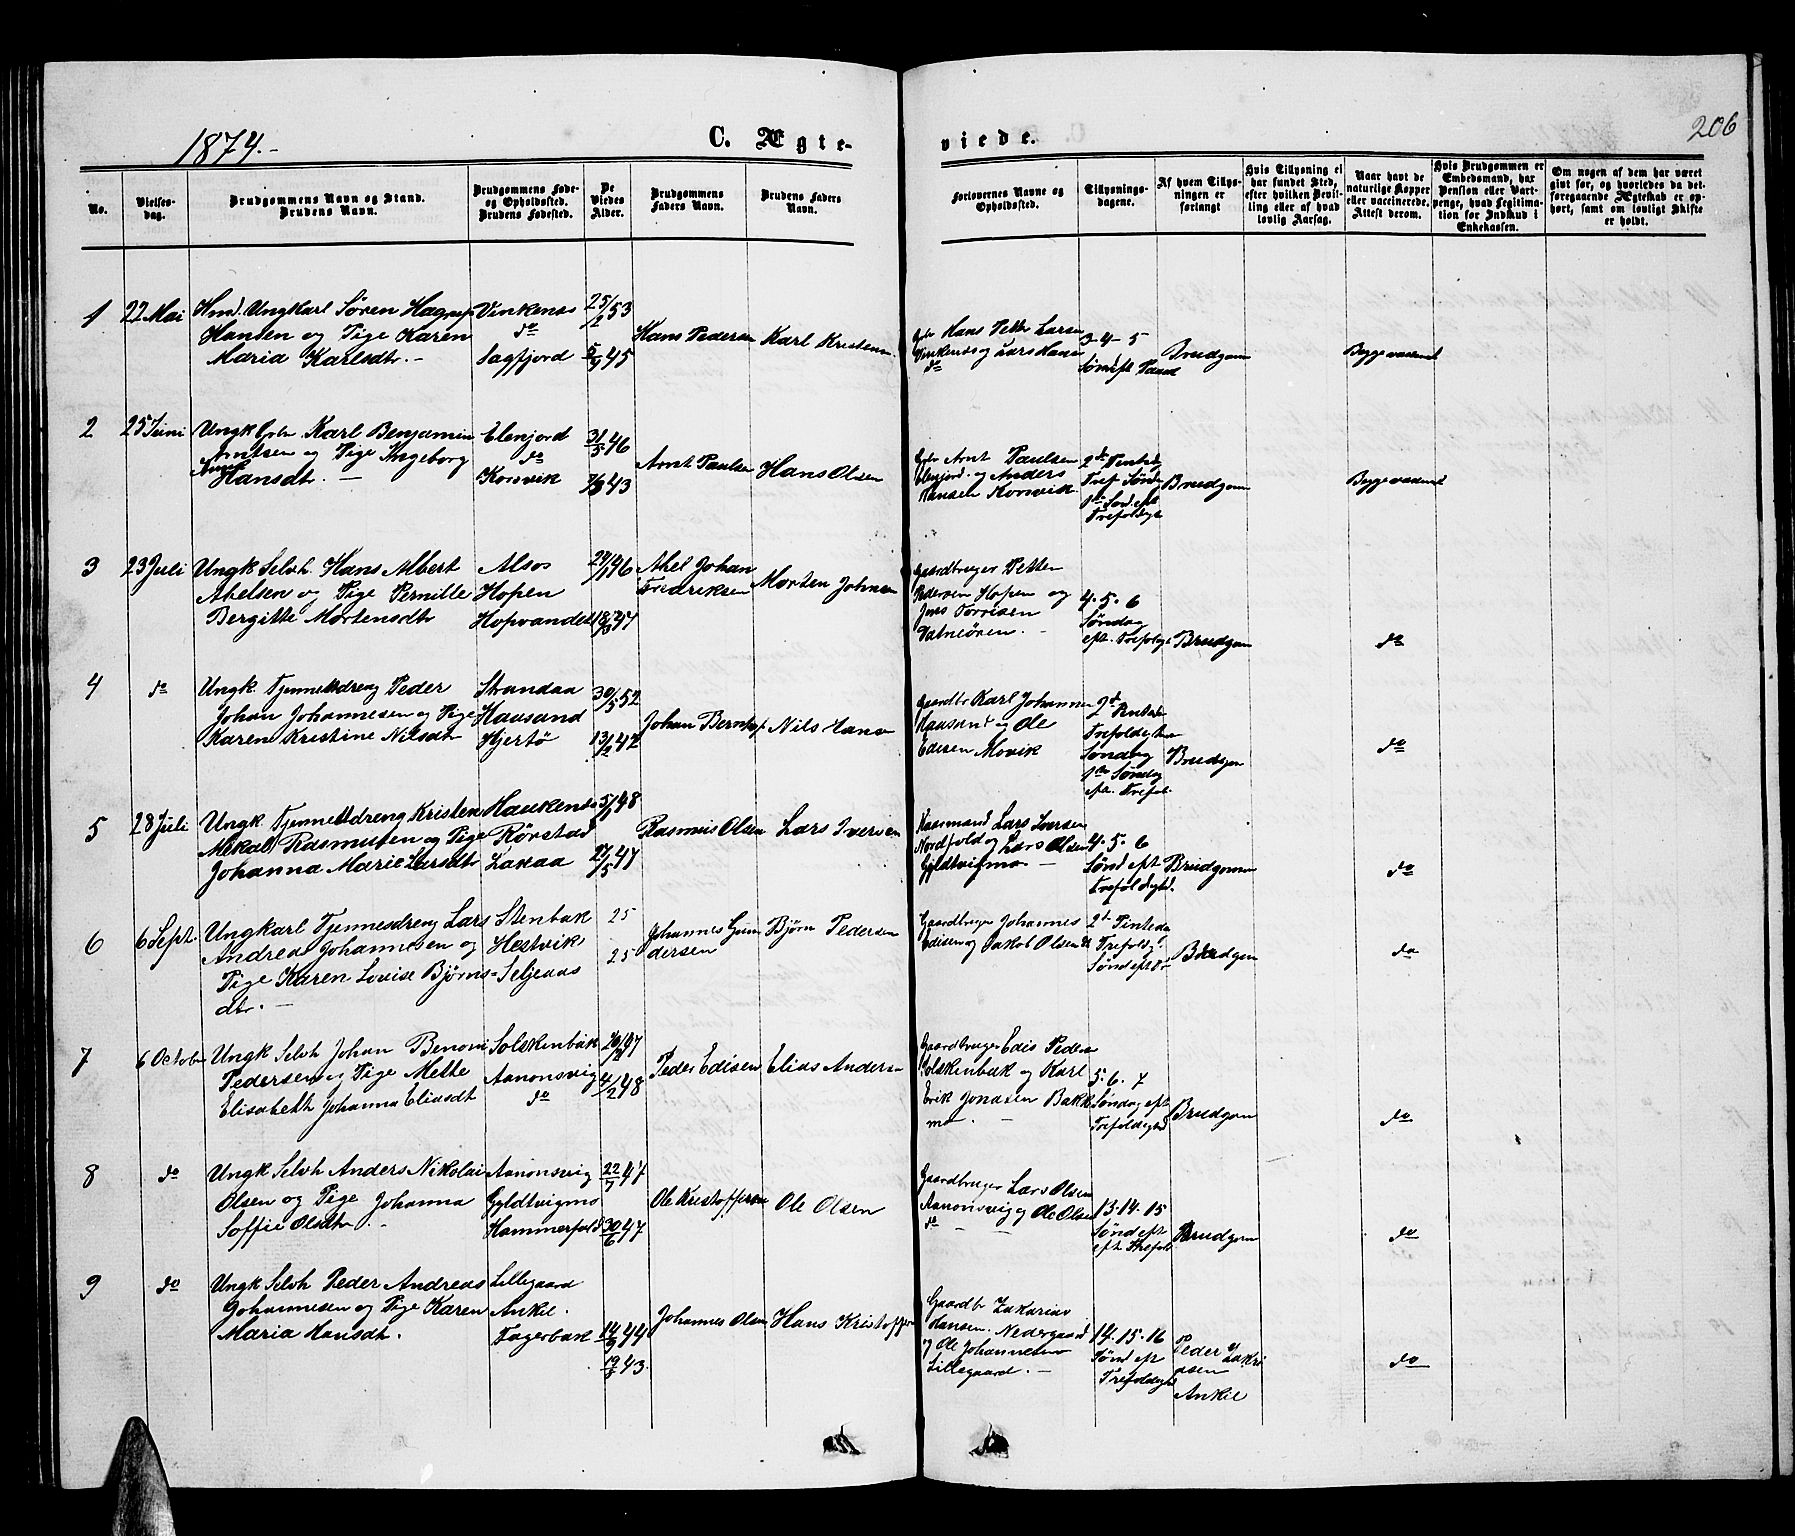 1874.-
C. Ægte-
viede.
206
No.
Vielses-
dag.
Brudgommens Navn og Stand.
Brudens Navn.
Brudgommens Føde-
og Opholdssted.
Brudens Fødested.
De
Viedes
Alder.
Brudgommens
Faders Navn.
Brudens Faders
Navn.
Forlovernes Navne og
Opholdssted.
Tillysnings-
dagene.
Af hvem Tillys-
ningen er
forlangt
Hvis Tillysning ei
har fundet Sted,
efter hvilken Bevil-
ling eller af hvad
lovlig Aarsag.
Naar havt de
naturlige Kopper
eller vaccinerede.
Attest derom.
Hvis Brudgommen er
Embedsmand, har
Pension eller Vart-
penge, hvad Legitima-
tion for Indskud i
Enkekassen.
Om nogen af dem har været
gift før, og hvorledes da det
foregaaende Ægteskab er op-
hørt, samt om lovligt Skifte
er holdt.
1
22 Mai
Hmd. Ungkarl Søren Hagerup
Hansen og Pige Karen
Maria Karlsdtr. -
Vinkenes
do
Sagfjord
25/2 53
5/9 45
Hans Pedersen
Karl Kristensen
Gbr Hans Petter Larsen
Vinkenes og Lars Hansen
do
3-4-5
Sønd eft Paask
Brudgom
Begge vaccinert
2
25 Juni
Ungk Gbr Karl Benjamin
Arntsen og Pige Ingeborg
Anna
Hansdtr. -
Elenjord
do
Korsvik
31/5 46
43
Arnt Paulsen
Hans Olsen
Gbr Arnt Paulsen
Elenjord. og Anders
Hansen Korsvik
2de Pintedag
Tref. Søndag
1ste Sød. eft
Trefoldigh
Brudgom
Begge vaccinert
3
23 Juli
Ungk Selvh. Hans Albert
Abelsen og Pige Pernille
Bergitte Mortensdtr
Alsos
Hopen
Hopvandet
46
47
Abel Johan
Fredriksen
Morten Johnsen
Gaardbruger Petter
Pedersen Hopen og
Jens Torrisen
Vatneören. -
4. 5. 6
Søndag
eft. Trefoldigh
Brudgom
do
4
do
Ungk. Tjennestdreng Peder
Johan Johannesen og Pige
Karen Kristine Nilsdtr
Strandaa
Haasand
Hjertö
30/5 52
13/2 42
Johan Berntof
Nils Hansen
Gaardbr Karl Johannesen
Haasand og Ole
Edisen Movik
2d Pintedag
Trefoldigheds
Søndag
1ste Søndag
eft. Trefol.
Brudgom
do
5
28 Juli
Ungk. Tjennestdreng Kristen
Mikal Rasmusen og Pige
Johanna Marie Larsdtr
Haukenes
Rörstad
Laxaa
48
27/5 47
Rasmus Olsen
Lars Iversen
Huusmand Lars Iversen
Nordfold og Lars Olsen
Gyldtvigmo -
4. 5. 6
Sønd eft
Trefoldighd.
Brudgommen
do
6
6 Sept.
Ungkarl Tjennesdreng Lars
Andreas Johannesen og
Pige Karen Lovise Björns-
dtr. -
Stenbak
Hestvik
Seljeaas
25
25
Johannes Gun
dersen
Björn Pedersen
Gaardbruger Johannes
Edisen og Jakob Olsen
2d Pintedag
Trefoldigh.
Sønd eft Tr
Brudgom
do
7
6 Octobr
Ungk Selvh Johan Benoni
Pedersen og Pige Mette
Elisabeth Johanna Eliasdt
Solskenbak
Aanonsvig
do
47
4/2 48
Peder Edisen
Elias Anders-
Gaardbruger Edis Pedersen
Solskenbak og Karl
Erik Jonasen Bakk
mo -
5. 6. 7
Søndag eft
Trefoldighed
Brudgom
do
8
do
Ungk Selvh Anders Nikolai
Olsen og Pige Johanna
Soffie Olsdtr. -
Aanonsvig
Gyldtvigmo
Hammerfold
22/7 47
30/6 47
Ole Kristoffersen
Ole Olsen
Gaardbruger Lars Olsen
Aanonsvig og Ole Olsen
do - -
13. 14. 15
Sønd eft
eft Trefol.
Brudgom
do
9
do
Ungk Selvh Peder Andreas
Johannesen og Pige Karen
Maria Hansdt.
Lillegaard
Ankil.
Fagerbak
14/9 44
43.
Johannes Olsen
Hans Kristoffer
Gaardbr Zakarias
Hansen. Nedergaard
og Ole Johannesen
Lillegaard. -
14. 15. 16
Sønd eft
Trefoldigh
Peder Zakri
asen
Ankil
do